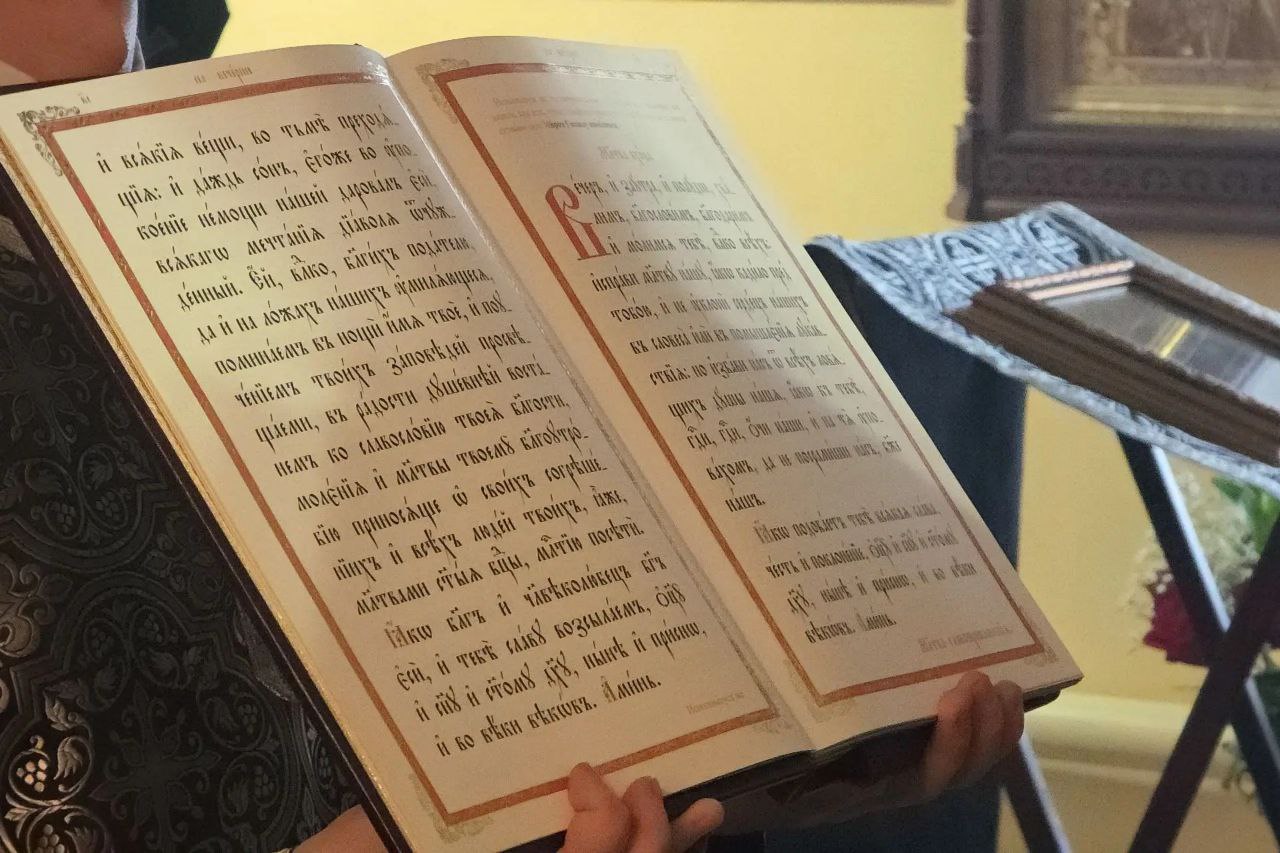 на вечерни
и҆ всѧ́кїѧ ве́щи, во тьмѣ̀ преходѧ́-
щїѧ: и҆ да́ждь со́нъ, є҆го́же во ᲂу҆по-
кое́нїе не́мощи на́шей дарова́лъ є҆сѝ,
всѧ́кагѡ мечта́нїѧ дїа́волѧ ѿчꙋж-
де́нный. Є҆́й, вл҃ко, бл҃ги́хъ пода́телю,
да и҆ на ло́жахъ на́шихъ ᲂу҆милѧ́ющесѧ,
помина́емъ въ нощѝ и҆́мѧ твоѐ, и҆ поꙋ-
че́нїемъ твои́хъ за́повѣдей просвѣ-
ща́еми, въ ра́дости дꙋше́внѣй воста́-
немъ ко славосло́вїю твоеѧ̀ бл҃гости,
моле́нїѧ и҆ мл҃твы твоемꙋ̀ бл҃гоꙋтро́-
бїю принося́ще ѡ҆ свои́хъ согрѣше́-
нїихъ и҆ всѣ́хъ люде́й твои́хъ, ꙗ҆̀же,
мл҃твами ст҃ы́ѧ бц҃ы, мл҃тїю посѣтѝ.
Ꙗ҆́кѡ бл҃гъ и҆ чл҃вѣколю́бецъ бг҃ъ
є҆сѝ, и҆ тебѣ̀ сла́вꙋ возсыла́емъ, ѻ҆ц҃ꙋ̀
и҆ сн҃ꙋ и҆ ст҃о́мꙋ дх҃ꙋ, ны́нѣ и҆ при́снѡ,
и҆ во вѣ́ки вѣкѡ́въ. А҆ми́нь.
Мл҃тва втора́ѧ
Ве́черъ, и҆ заꙋ́тра, и҆ полꙋ́дне, хва́-
лимъ, бл҃гослови́мъ, бл҃годари́мъ
и҆ мо́лимсѧ тебѣ̀, вл҃ко всѣ́хъ:
и҆спра́ви мл҃твꙋ на́шꙋ, ꙗ҆́кѡ кади́ло пред̾
тобо́ю, и҆ не ᲂу҆клонѝ серде́цъ на́шихъ
въ словеса̀ и҆лѝ въ помышле́нїѧ лꙋка́в-
ствїѧ: но и҆зба́ви на́съ ѿ всѣ́хъ ловѧ́-
щихъ дꙋ́шы на́шѧ, ꙗ҆́кѡ къ тебѣ̀,
гдⷭ҇и, гдⷭ҇и, ѻ҆́чи на́ши, и҆ на тѧ̀ ᲂу҆по-
ва́хомъ, да не посрами́ши на́съ, бж҃е
на́шъ.
Ꙗ҆́кѡ подоба́етъ тебѣ̀ всѧ́каѧ сла́ва,
че́сть и҆ поклоне́нїе, ѻ҆ц҃ꙋ̀ и҆ сн҃ꙋ и҆ ст҃о́мꙋ
дх҃ꙋ, ны́нѣ и҆ при́снѡ, и҆ во вѣ́ки
вѣкѡ́въ. А҆ми́нь.